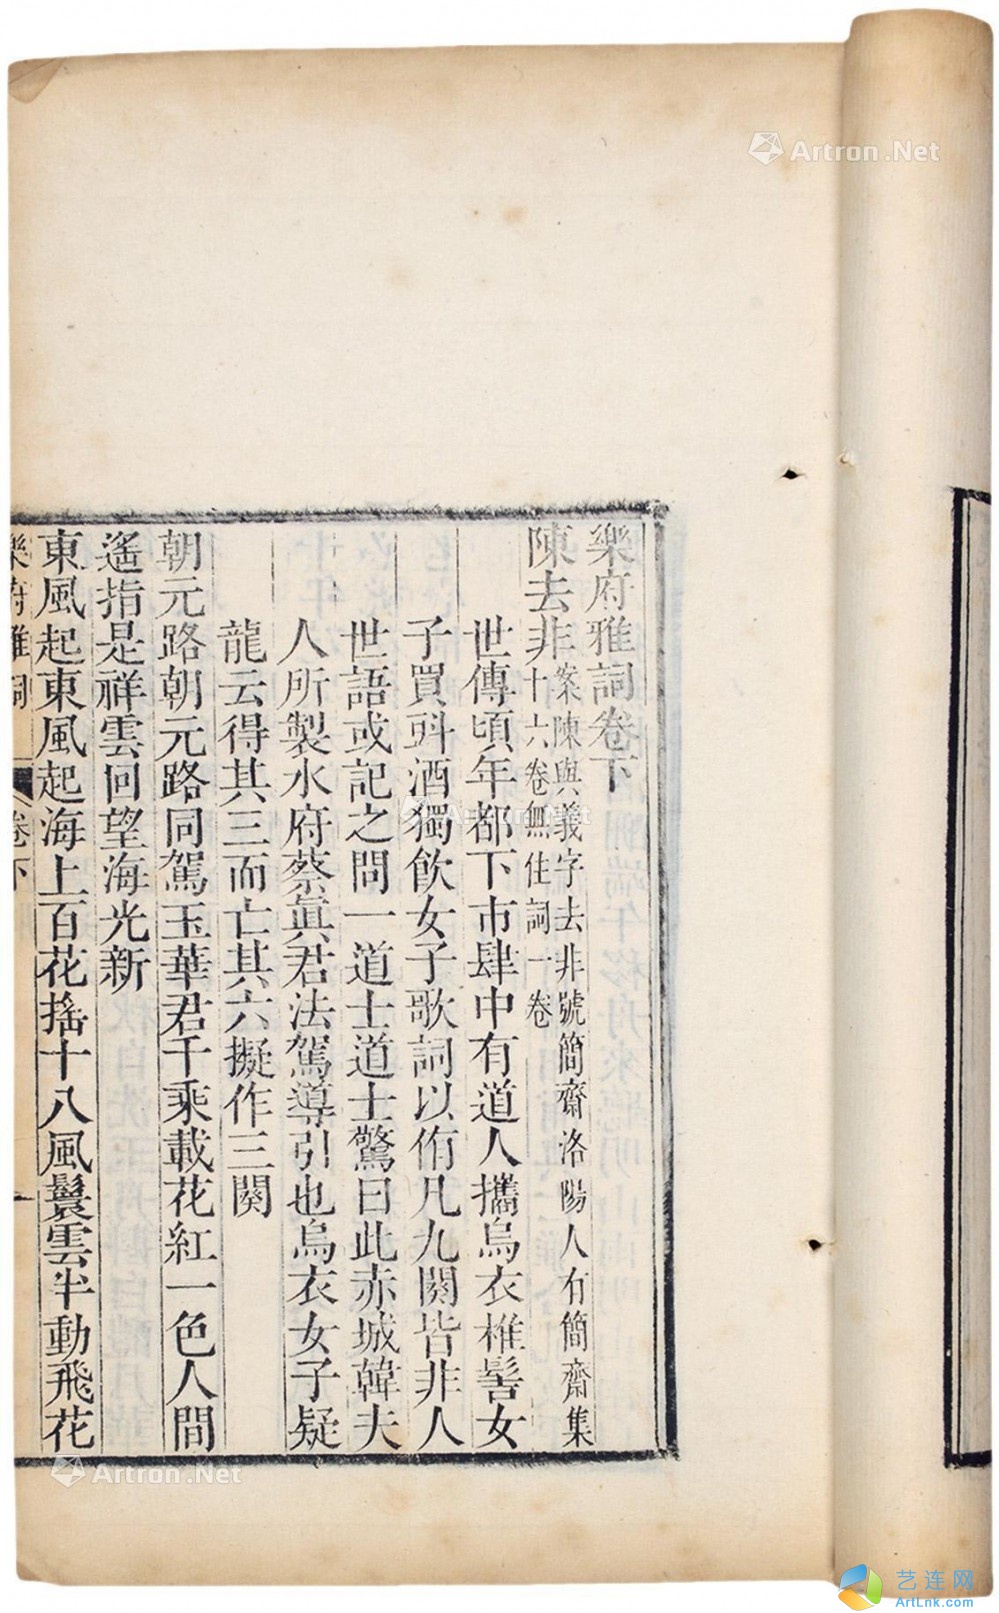 樂府雅詞卷下
陳去非案陳與義字去非號簡齋洛陽人有簡齋集
十六卷無住詞一卷
世傳頃年都下市肆中有道人攜烏衣椎髻女
子買㪷酒獨飲女子歌詞以侑凡九闋皆非人
世語或記之問一道士道士驚曰此赤城韓夫
人所製水府蔡眞君法駕導引也烏衣女子疑
龍云得其三而亡其六擬作三闋
朝元路朝元路同駕玉華君千乘載花紅一色人間
遙指是祥雲回望海光新
東風起東風起海上百花搖十八風鬟雲半動飛花
樂府雅詞
卷下
Artron.Net
Artron.Net
Artron.Net
Artron.Net
艺连网
ArtLnk.com